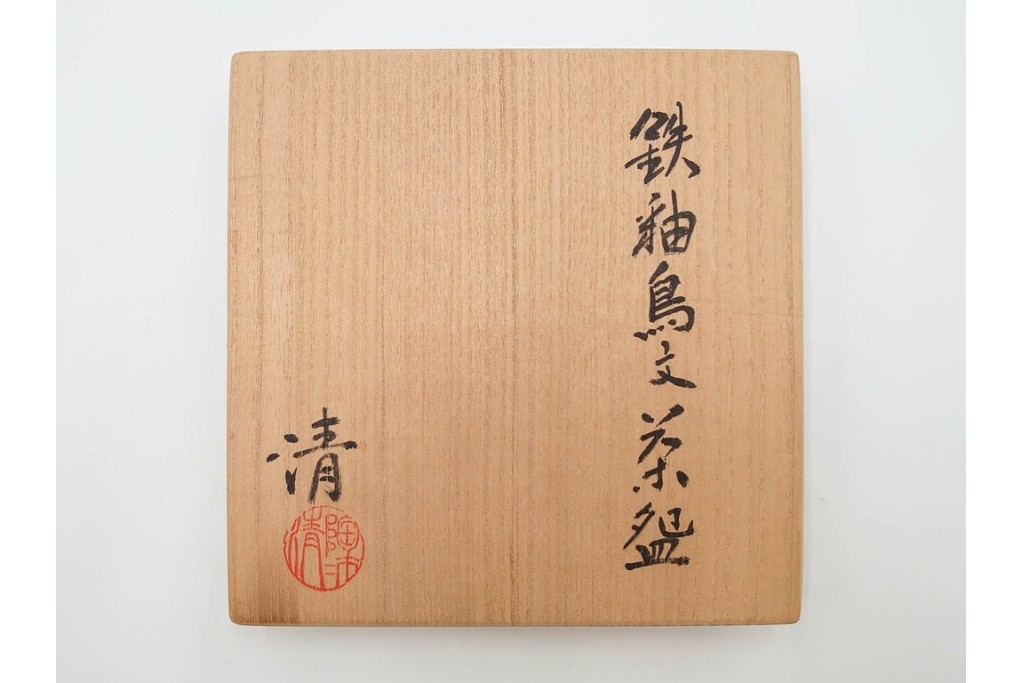 鉄釉鳥文茶盌
清